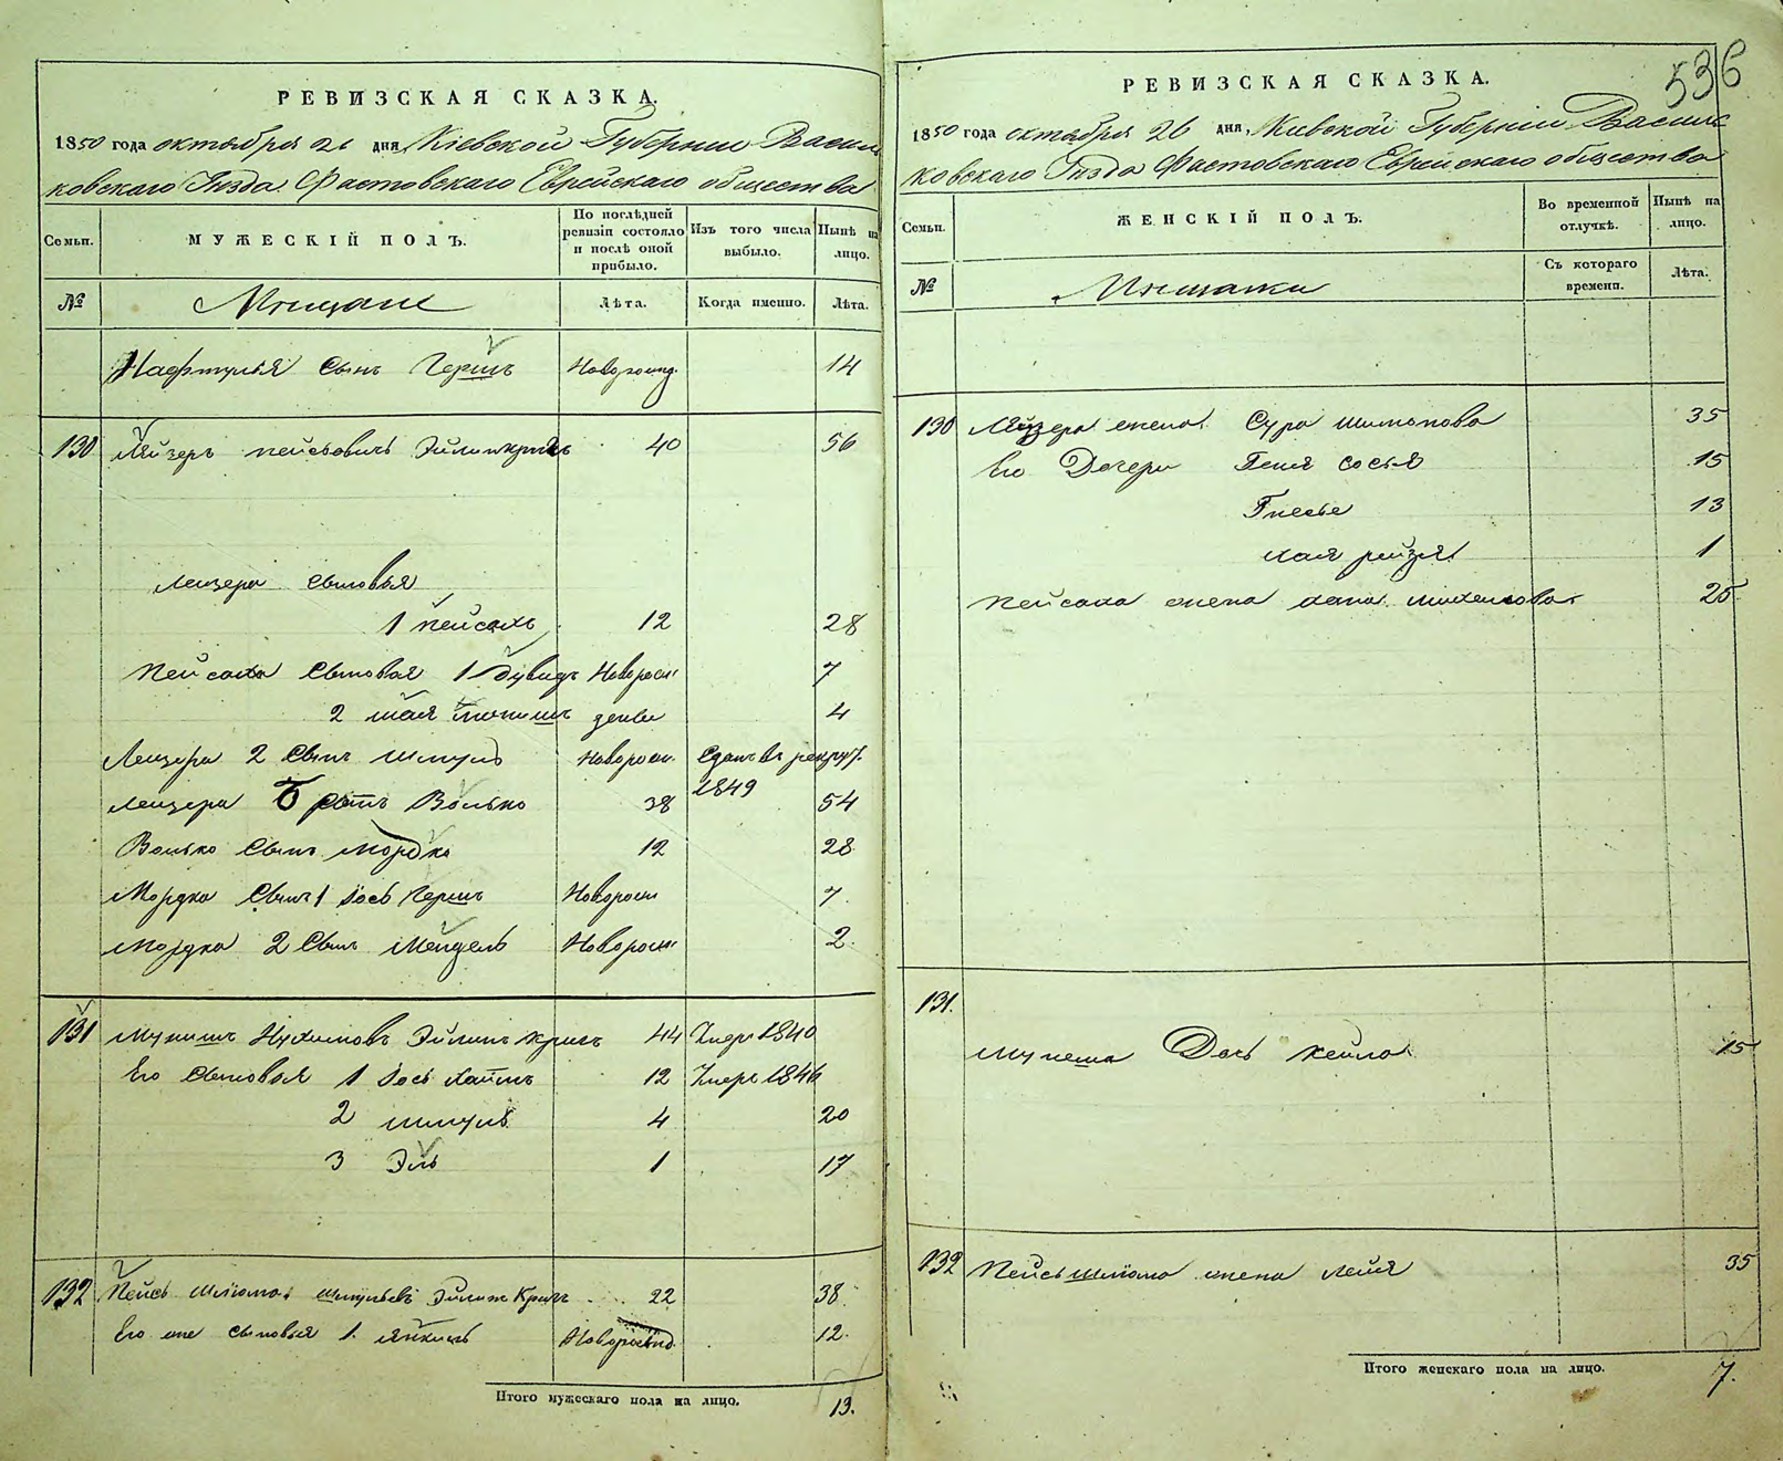 РЕВИЗСКАЯ СКАЗКА.
1850 года октября 26 дня, Кіевской Губерніи Васил
ковскаго Уѣзда Фастовскаго Еврейскаго общества
Семьи.
МУЖЕСКІЙ ПОЛЪ.
По послѣдней ревизіи состояло и послѣ оной прибыло.
Изъ того числа выбыло.
Нынѣ на лицо.
№
Мѣщане
Лѣта.
Когда именно.
Лѣта.
Нафтулья Сынъ Гершъ 14
130 Лейзеръ Пейсовичъ 40 56
Лейзера Сыновья
1 Пейсахъ 12 28
Пейсаха Сыновья 1 Дувидъ Новорож 7
2 Шая денны 4
Лейзера 2 Сынъ Шмуль Новорож. Сданъ въ рекрут.
1849
Лейзера Братъ Волько 38 54
Волько Сынъ Мордко 12 28
Мордка Сынъ 1 Іось Гершъ Новорож 7.
Мордка 2 Сынъ Мендель Новорож 2.
131 Мунишъ Нухимовъ 44 Умеръ 1840
Его Сыновья 1 Іось Хаимъ 12 Умеръ 1846
2 Шмуль 4 20
3 Эль 1 17
132 Пейсъ Шлiома 22 38.
Его же сыновья 1. Янкель Новорожд. 12.
Итого мужескаго пола на лицо.
13.
536
РЕВИЗСКАЯ СКАЗКА.
1850 года октября 26 дня, Киевской Губерніи Васил
ковскаго Уѣзда Фастовскаго Еврейскаго общества
Семьи.
ЖЕНСКІЙ ПОЛЪ.
Во временной отлучкѣ.
Нынѣ на лицо.
№
Мѣщанки
Съ котораго времени.
Лѣта.
130 Лейзера жена Сура Шимонова 35
Его Дочери Геня Сося 15
Гнесье 13
Хая Рейзя 1
Пейсаха жена Хана 25
131.
Мунеша Дочь Хейла 15
132 Пейсъ Шлiома жена Лейя 35
Итого женскаго пола на лицо.
7.